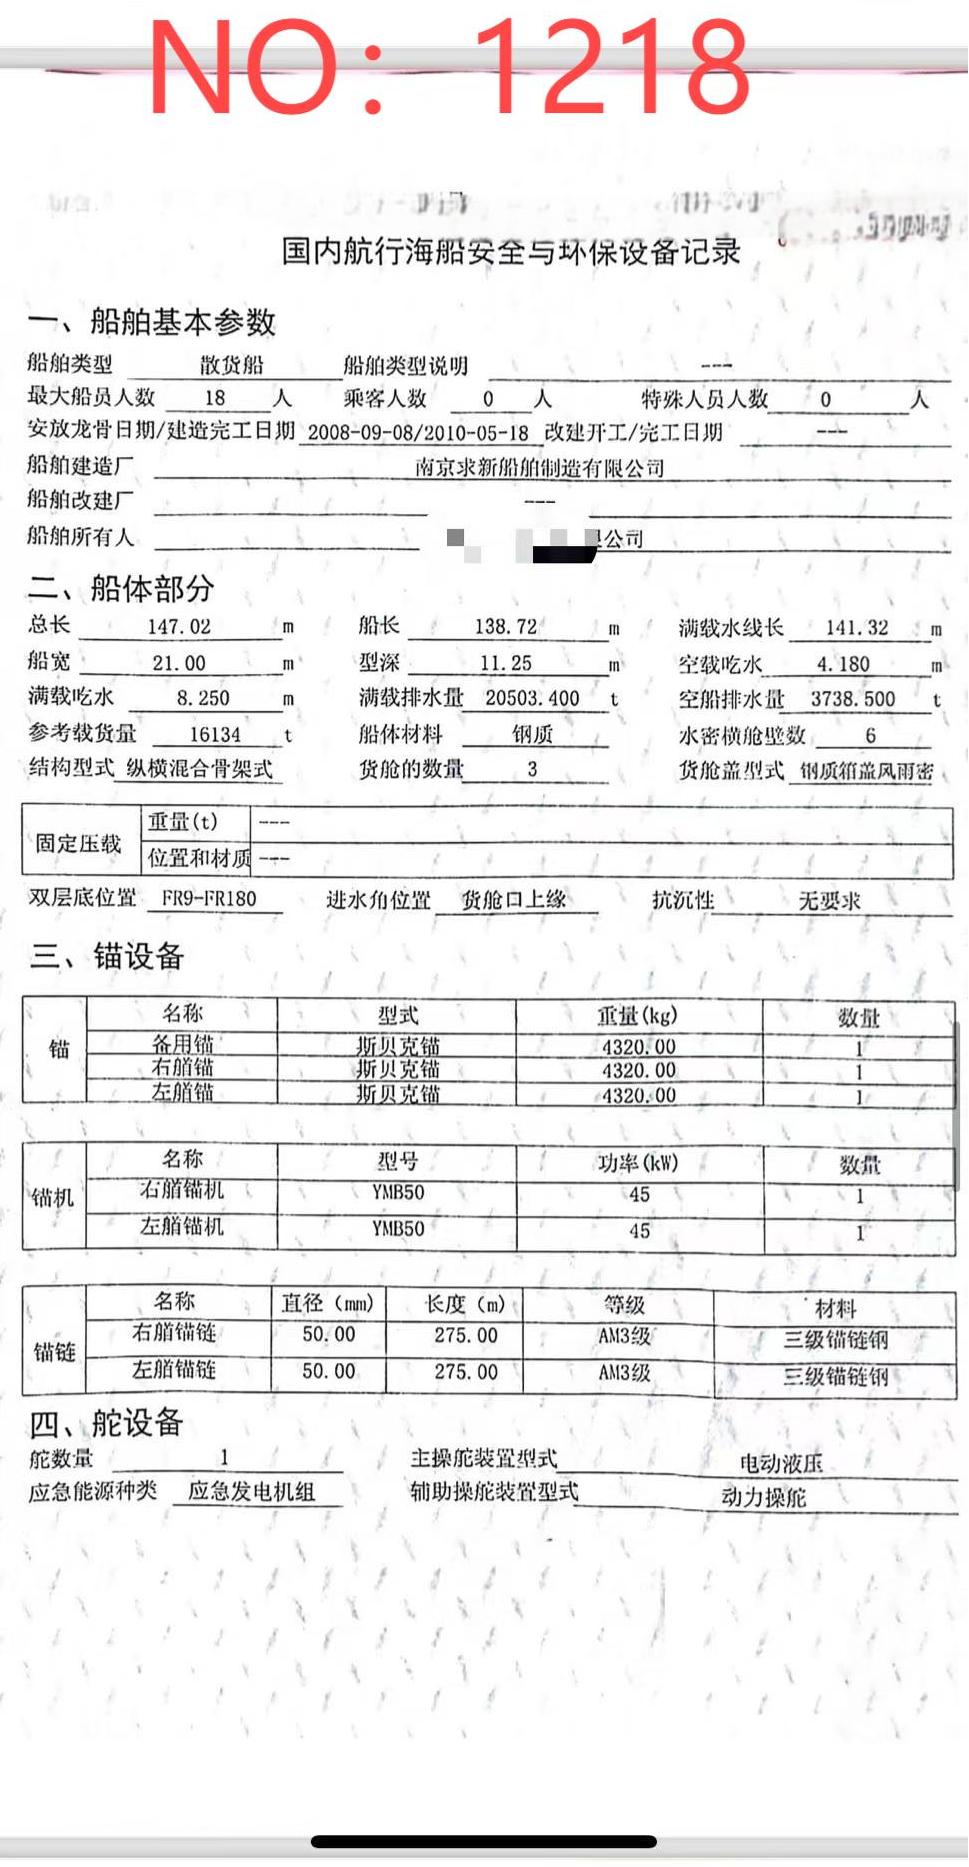 NO：1218
国内航行海船安全与环保设备记录
一、船舶基本参数
船舶类型 散货船 船舶类型说明 ---
最大船员人数 18 人 乘客人数 0 人 特殊人员人数 0 人
安放龙骨日期/建造完工日期 2008-09-08/2010-05-18 改建开工/完工日期 ---
船舶建造厂 南京求新船舶制造有限公司
船舶改建厂 ---
船舶所有人 公司
二、船体部分
总长 147.02 m 船长 138.72 m 满载水线长 141.32 m
船宽 21.00 m 型深 11.25 m 空载吃水 4.180 m
满载吃水 8.250 m 满载排水量 20503.400 t 空船排水量 3738.500 t
参考载货量 16134 t 船体材料 钢质 水密横舱壁数 6
结构型式 纵横混合骨架式 货舱的数量 3 货舱盖型式 钢质箱盖风雨密
固定压载 重量(t) ---
位置和材质 ---
双层底位置 FR9-FR180 进水角位置 货舱口上缘 抗沉性 无要求
三、锚设备
锚 名称 型式 重量(kg) 数量
备用锚 斯贝克锚 4320.00 1
右艏锚 斯贝克锚 4320.00 1
左艏锚 斯贝克锚 4320.00 1
锚机 名称 型号 功率(kW) 数量
右艏锚机 YMB50 45 1
左艏锚机 YMB50 45 1
锚链 名称 直径（mm） 长度（m） 等级 材料
右艏锚链 50.00 275.00 AM3级 三级锚链钢
左艏锚链 50.00 275.00 AM3级 三级锚链钢
四、舵设备
舵数量 1 主操舵装置型式 电动液压
应急能源种类 应急发电机组 辅助操舵装置型式 动力操舵